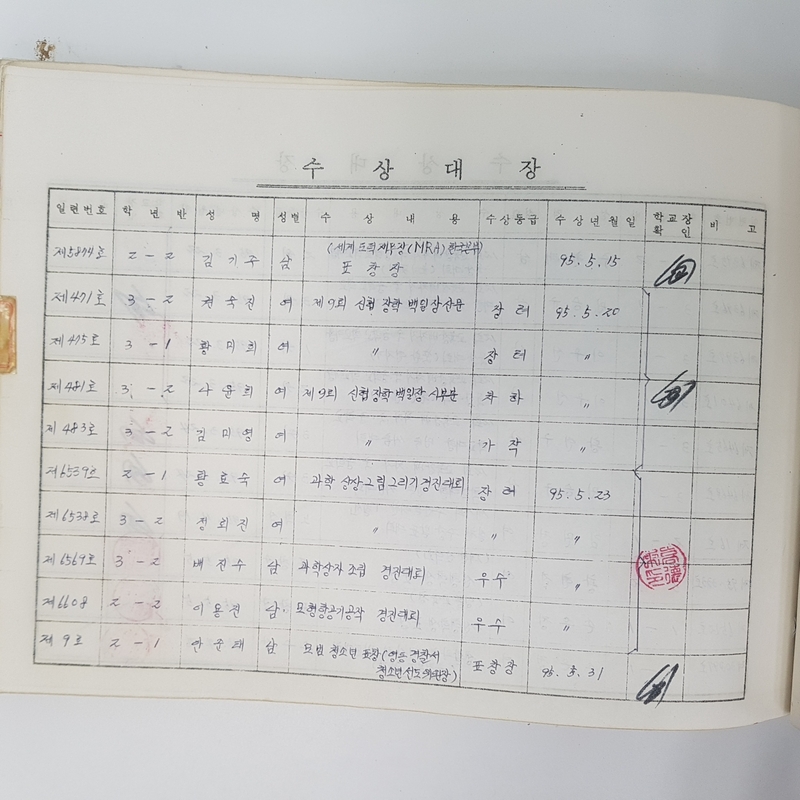 수 상 대 장
일련번호 학 년 반 성 명 성별 수 상 내 용 수상등급 수상년월일 학교장 확인 비 고
제5874호 2-2 김기주 남 (세계도덕재무장(MRA)한국본부) 표창장 95.5.15
제471호 3-2 권숙진 여 제9회 신협장학백일장산문 장려 95.5.20
제475호 3-1 황미희 여 〃 장려 〃
제481호 3-2 나윤희 여 제9회 신협장학백일장 시부분 차하 〃
제483호 3-2 김미영 여 〃 가작 〃
제6539호 2-1 황효숙 여 과학상상그림그리기경진대회 장려 95.5.23
제6538호 3-2 정회진 여 〃 〃 〃
제6569호 3-2 배진수 남 과학상자조립 경진대회 우수 〃
제6608 2-2 이용진 남 모형항공기공작 경진대회 우수 〃
제9호 2-1 안준태 남 모범청소년표창(영동경찰서 표창장 95.5.31
청소년선도위원장)